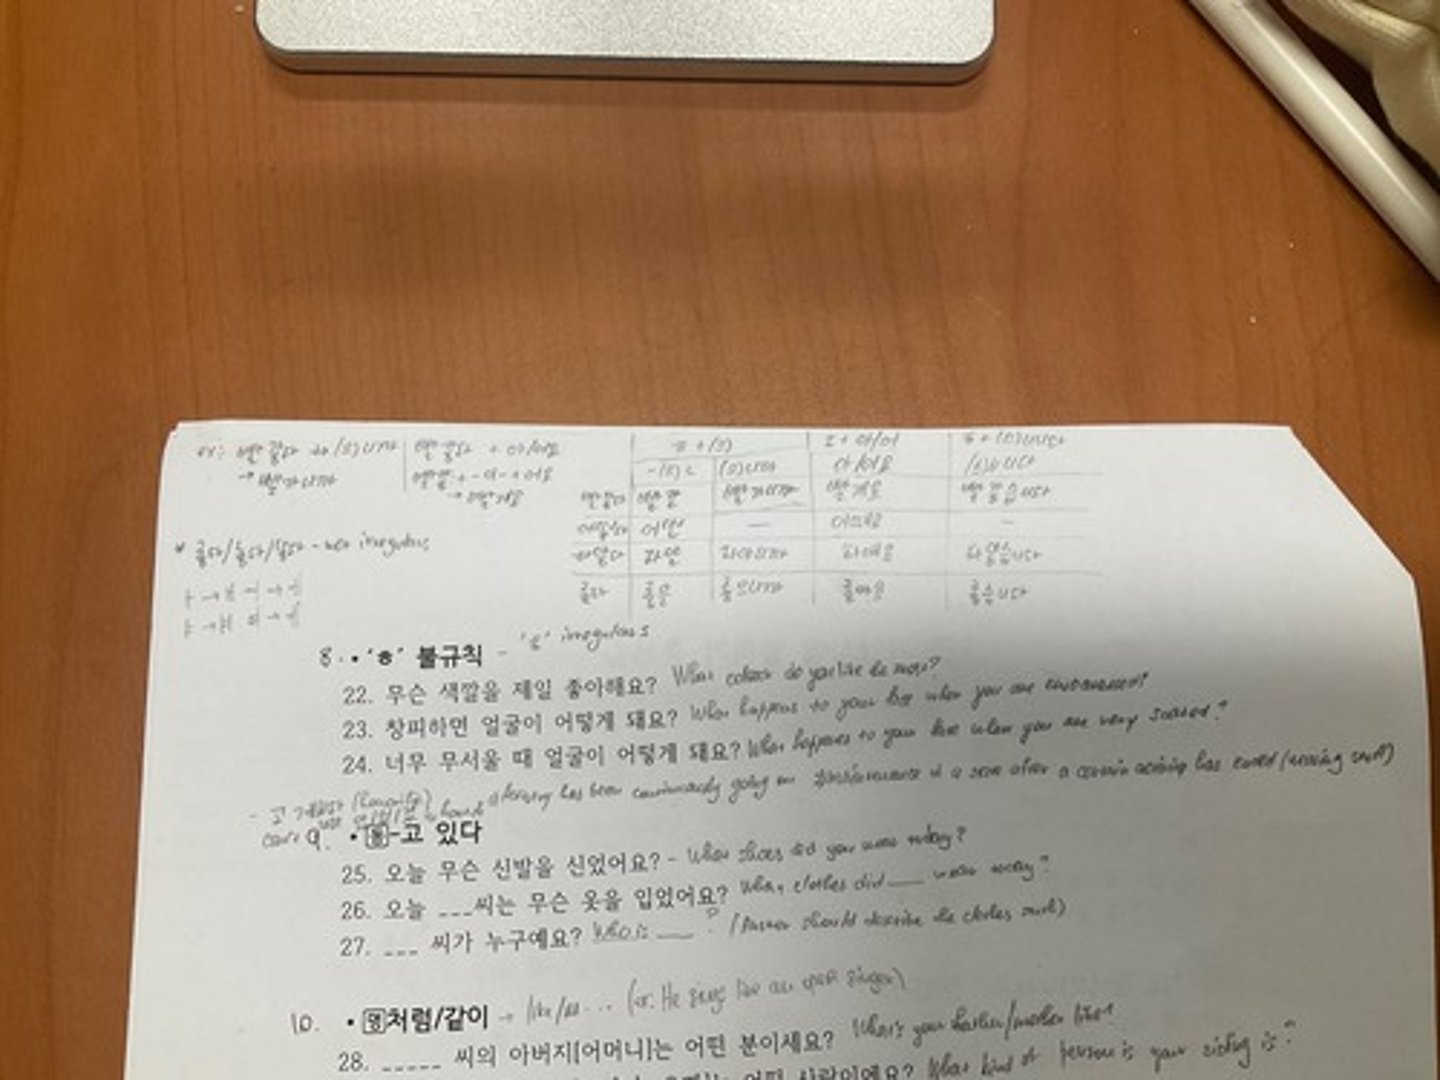 ex: 빨갛다 + (으)니까 | 빨갛다 + 아/어요
→ 빨가니까
→ 빨개요
ㅎ + (으) | ㅎ + 아/어 | ㅎ + (스)ㅂ니다
-(으)ㄴ | (으)니까 | 아/어요 | (스)ㅂ니다
빨갛다 | 빨간 | 빨가니까 | 빨개요 | 빨갛습니다
어떻다 | 어떤 | — | 어때요 | —
파랗다 | 파란 | 파라니까 | 파래요 | 파랗습니다
좋다 | 좋은 | 좋으니까 | 좋아요 | 좋습니다
- not irregulars
8. • 'ㅎ' 불규칙 - 'ㅎ' irregulars
22. 무슨 색깔을 제일 좋아해요? What colour do you like the most?
23. 창피하면 얼굴이 어떻게 돼요? What happens to your face when you are embarrassed?
24. 너무 무서울 때 얼굴이 어떻게 돼요? What happens to your face when you are very scared?
- 고 계시다 (honorific)
Activity has been continuously going on a certain activity has ended (wearing stuff)
9. • 동-고 있다
25. 오늘 무슨 신발을 신었어요? - What shoes did you wear today?
26. 오늘 ___씨는 무슨 옷을 입었어요? What clothes did ___ wear today?
27. ___ 씨가 누구예요? Who is ___? (Answer should describe the clothes)
10. • 명처럼/같이 → like/as ... (ex. He sings like an singer)
28. _____ 씨의 아버지[어머니]는 어떤 분이세요? What's your father/mother like?
어떤 사람이에요? What kind of person is your